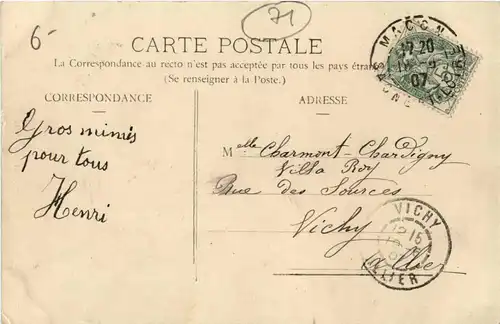 6-
71
CARTE POSTALE
La Correspondance au recto n'est pas acceptée par tous les pays étran
(Se renseigner à la Poste.)
MACON
17 20
07
SAONE-ET-LOIRE
CORRESPONDANCE
ADRESSE
Gros mimis
pour tous
Henri
Melle Charmont-Chardigny
Villa Roy
Rue des Sources
Vichy
Allier
VICHY
15
ALLIER